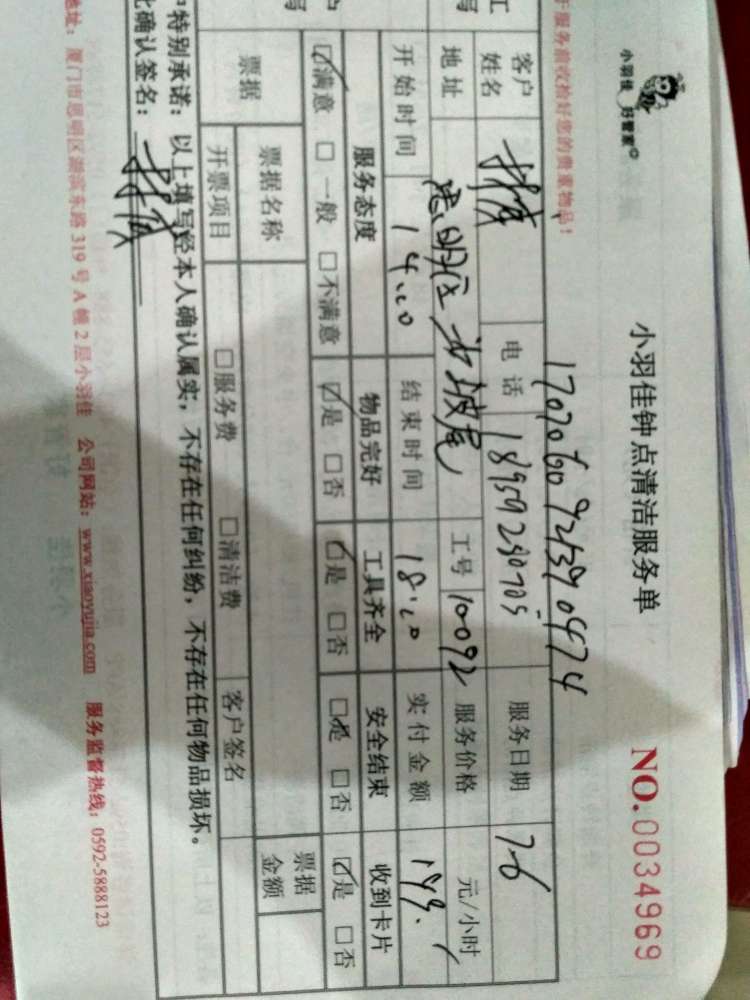 小羽佳 好管家
小羽佳钟点清洁服务单
NO.0034969
服务前收检好您的贵重物品!
客户姓名
电话 18959280705
服务日期 7-6
地址
思明区
工号 10092
服务价格 元/小时
开始时间 14:00
结束时间 18:00
实付金额
服务态度 物品完好 工具齐全 安全结束 收到卡片
☑满意 □一般 □不满意 ☑是 □否 ☑是 □否 ☑是 □否 ☑是 □否
票据 票据名称
票据金额
开票项目 □服务费 □清洁费 客户签名
特别承诺:以上填写经本人确认属实,不存在任何纠纷,不存在任何物品损坏。
确认签名:
地址:厦门市思明区湖滨东路319号A幢2层小羽佳 公司网站:www.xiaoyujia.com 服务监督热线:0592-5888123